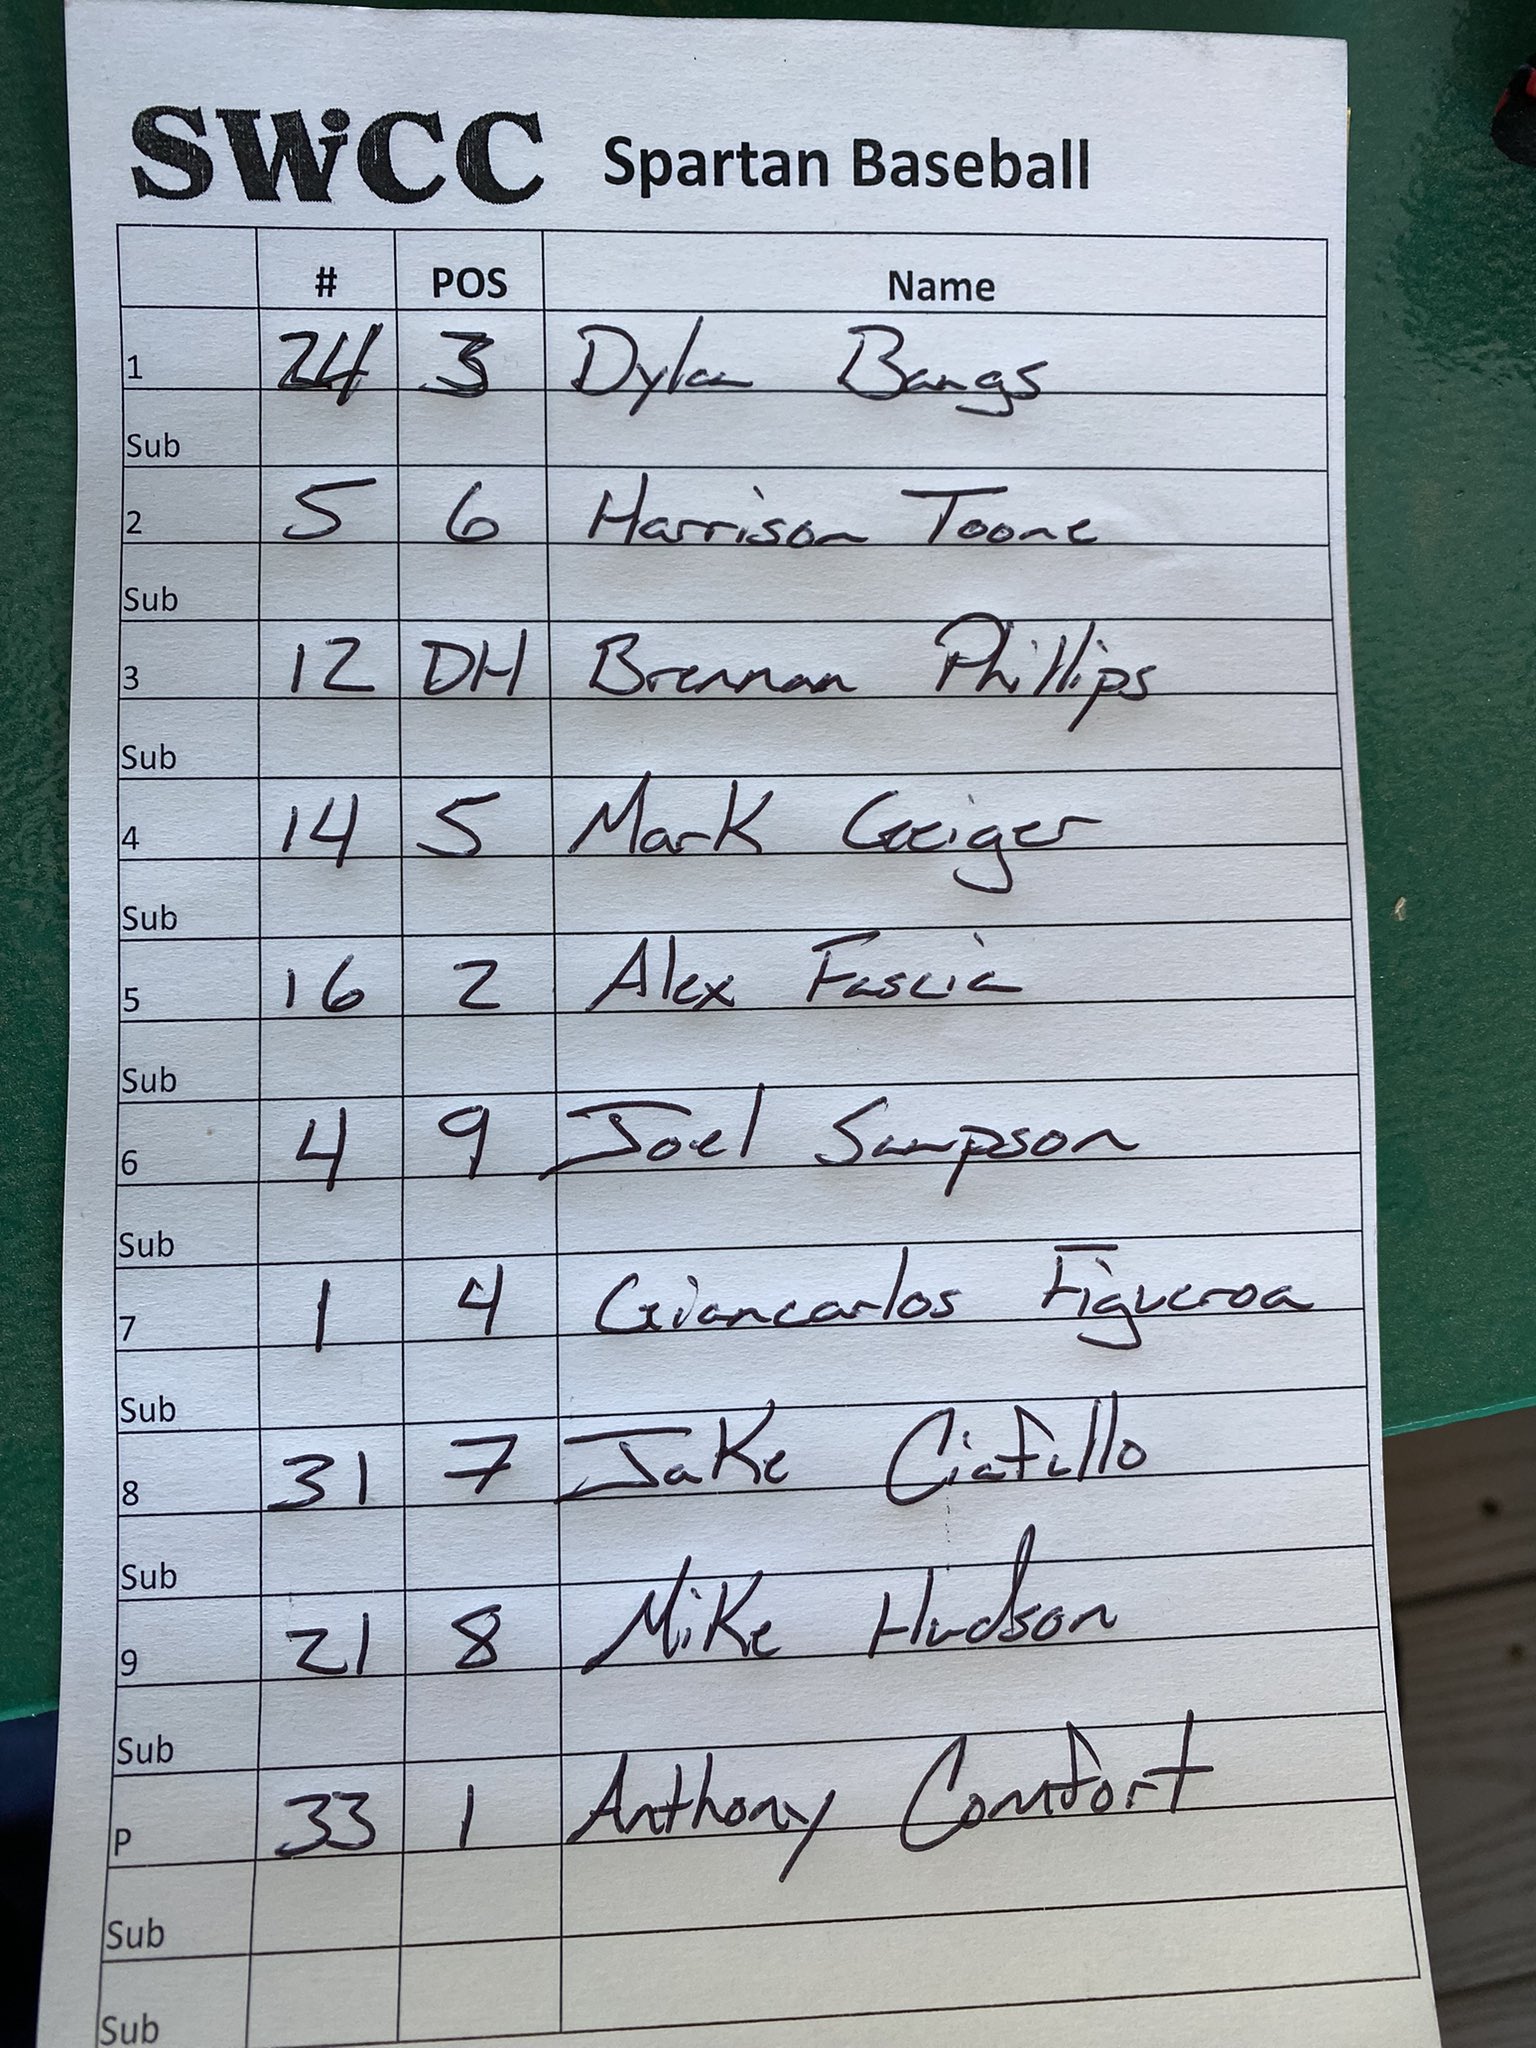 SWiCC Spartan Baseball
# POS Name
1 24 3 Dylan Bangs
Sub
2 5 6 Harrison Toone
Sub
3 12 DH Brennan Phillips
Sub
4 14 5 Mark Geiger
Sub
5 16 2 Alex Fascia
Sub
6 4 9 Joel Sampson
Sub
7 1 4 Giancarlos Figueroa
Sub
8 31 7 Jake Ciafullo
Sub
9 21 8 Mike Hudson
Sub
P 33 1 Anthony Comfort
Sub
Sub